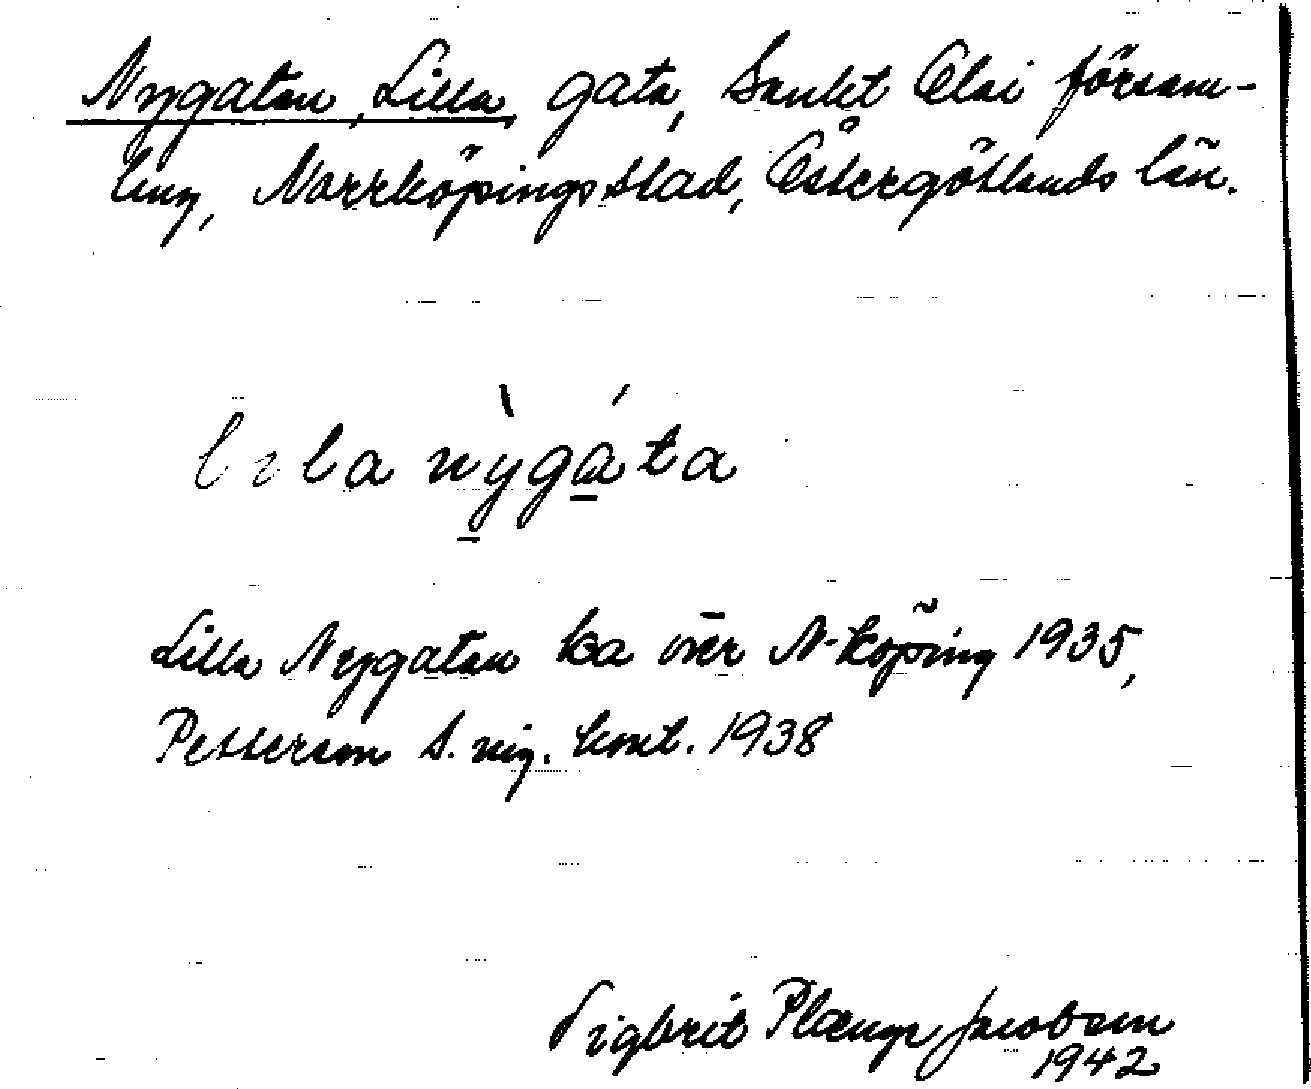 Nygatan, Lilla, gata, Sankt Olai försam-
ling, Norrköpings stad, Östergötlands län.
lila nỳgáta
Lilla Nygatan ka över N-köping 1935,
Petterson s. reg. kont. 1938
Sigbrit Plænge Jacobson
1942